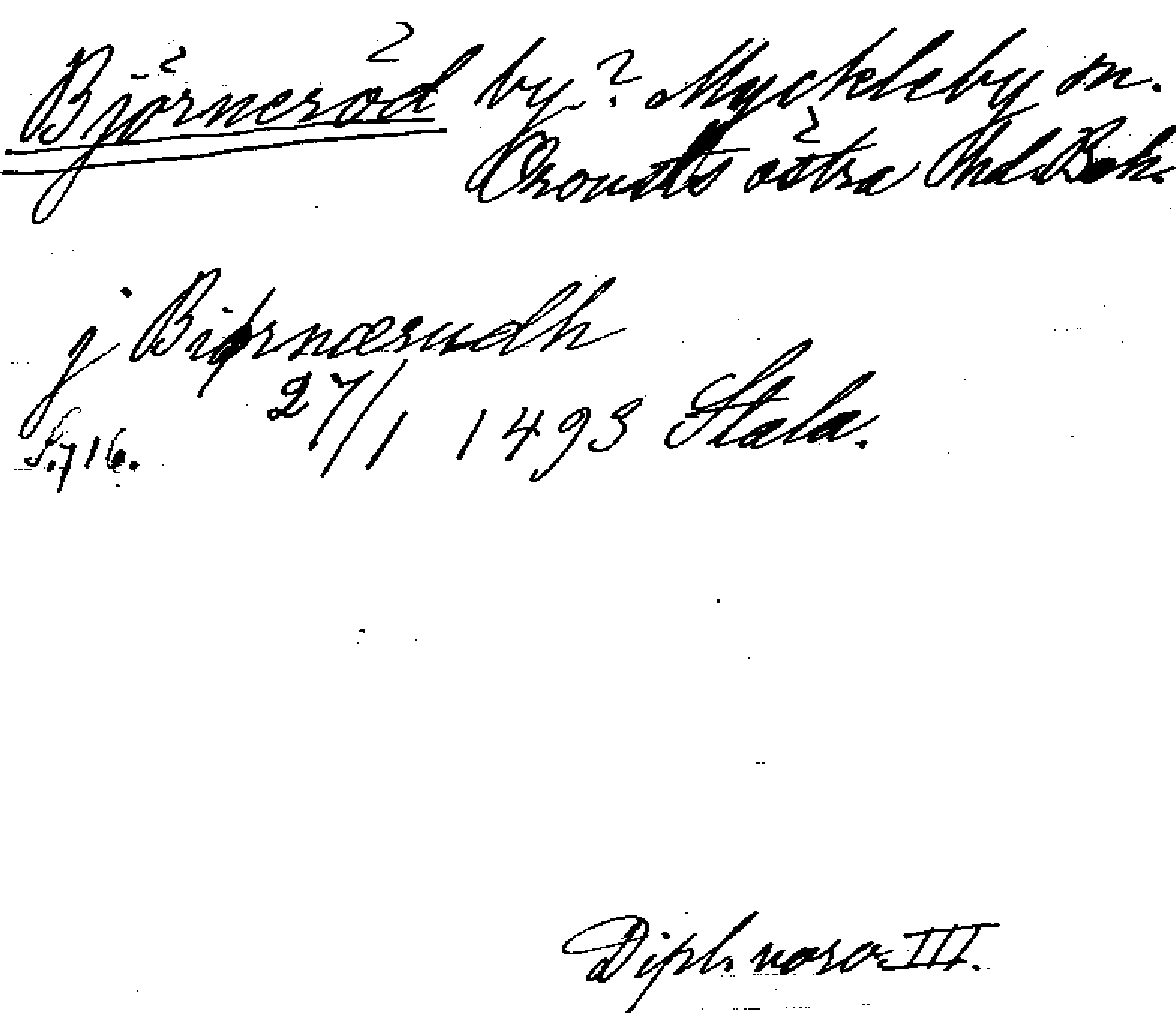 Björneröd by? Myckleby sn.
Orousts östra Hd. Boh.
j Biørnærudh
27/1 1493 Stala.
S. 716.
Dipl. norv. III.